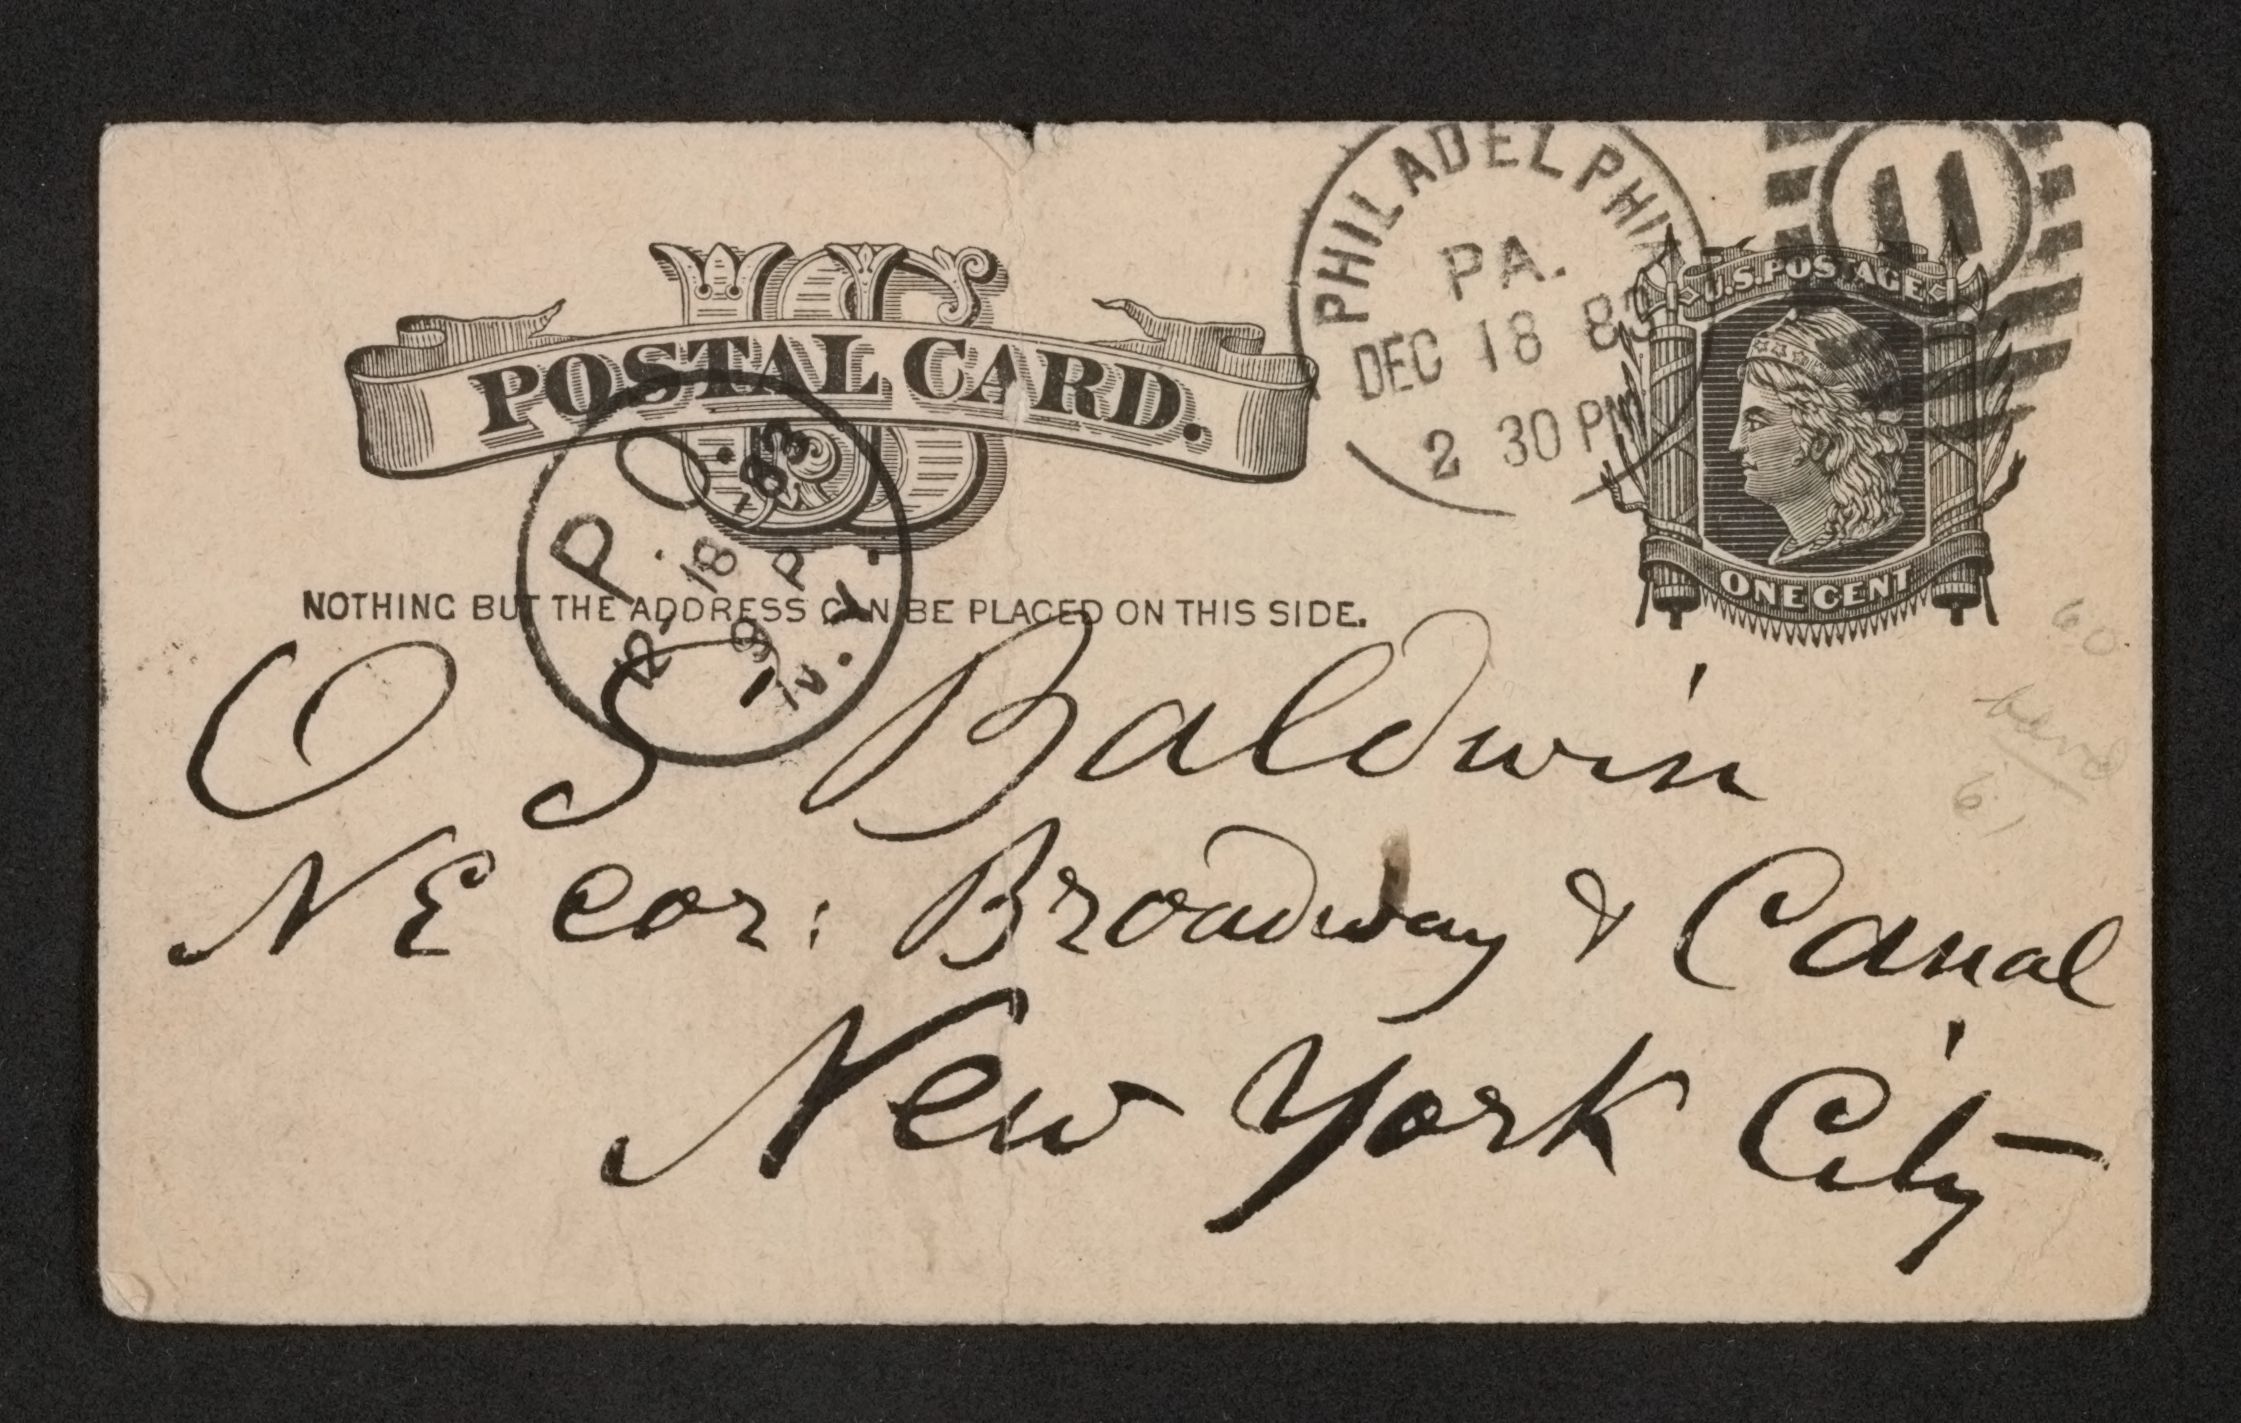 US
POSTAL CARD.
NOTHING BUT THE ADDRESS CAN BE PLACED ON THIS SIDE.
PHILADELPHIA
PA.
DEC 18 83
2 30 PM
11
U.S. POSTAGE
ONE CENT
P. O.
12-18-83
9 P
N.Y.
O S Baldwin
N E cor: Broadway & Canal
New York City
60
6